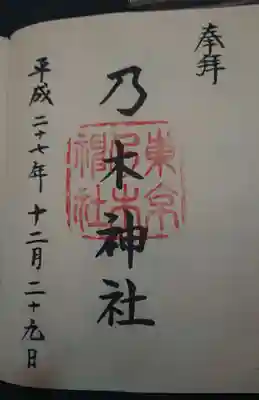 奉拝
乃木神社
東京乃木神社
平成二十七年十二月二十九日